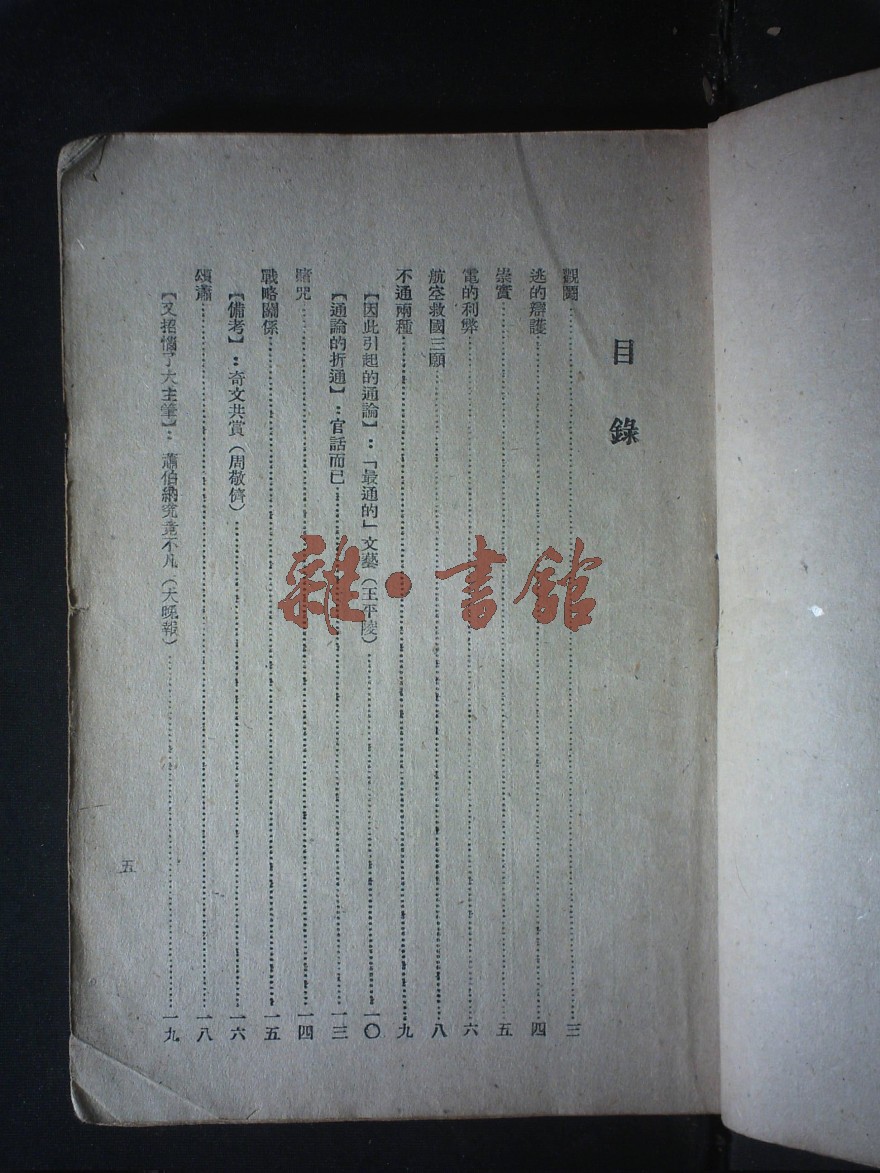 目錄
觀鬬……三
逃的辯護……四
崇實……五
電的利弊……六
航空救國三願……八
不通兩種……九
【因此引起的通論】：「最通的」文藝（王平陵）……一〇
【通論的折通】：官話而已……一三
賭咒……一四
戰略關係……一五
【備考】：奇文共賞（周敬儕）……一六
頌蕭……一八
【又招惱了大主筆】：蕭伯納究竟不凡（大晚報）……一九
五
雜·書館